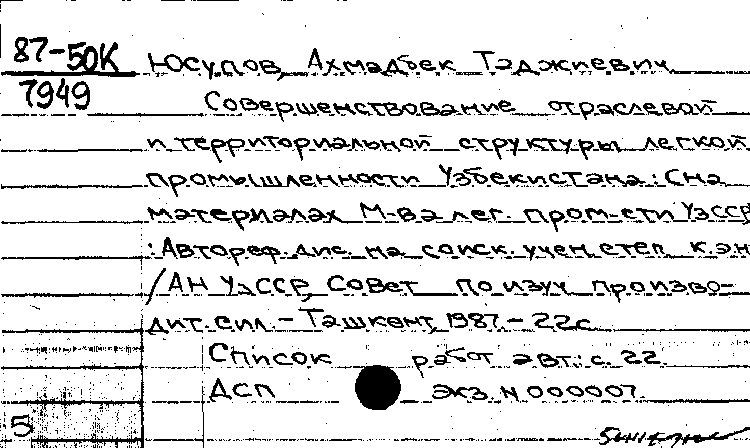 87-50К Юсупов, Ахмадбек Таджиевич
7949 Совершенствование отраслевой
и территориальной структуры легкой
промышленности Узбекистана: (На
материалах М-ва лег. пром-сти УзССР)
: Автореф. дис. на соиск. учен. степ. к.эн
/АН УзССР, Совет по изуч. произво-
дит. сил. – Ташкент, 1987. – 22с.
Список работ авт.: с. 22
ДСП экз. N 000007
5